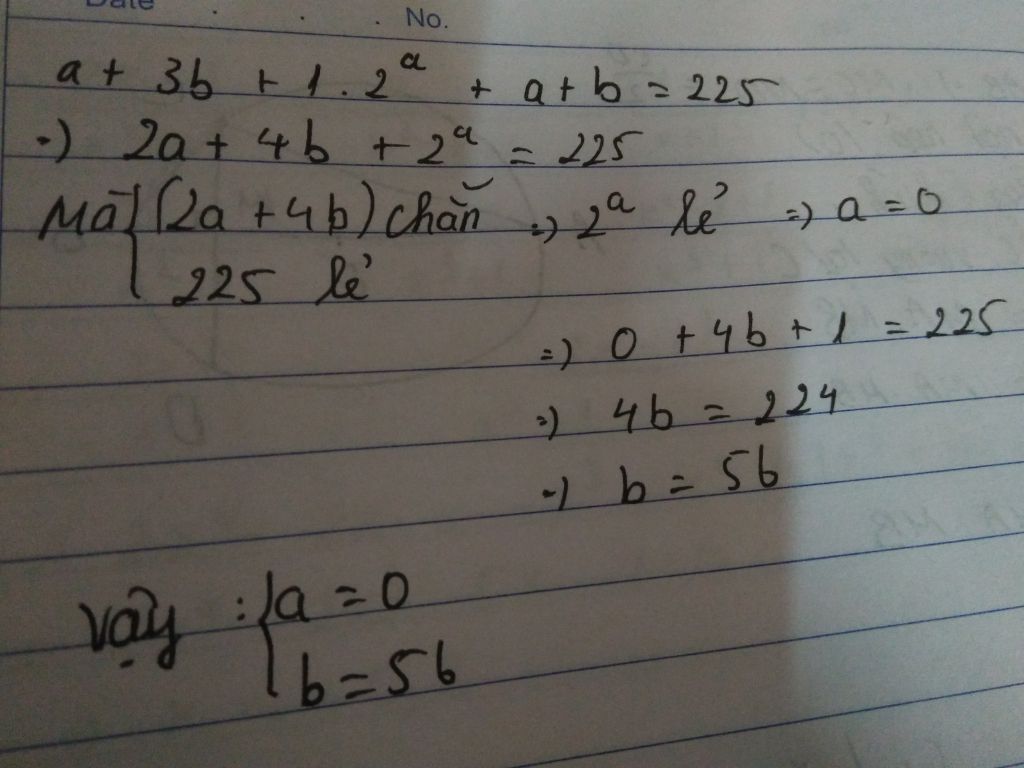 Date No.
a + 3b + 1 . 2^a + a + b = 225
=) 2a + 4b + 2^a = 225
Mà { (2a + 4b) chẵn =) 2^a lẻ =) a = 0
225 lẻ
=) 0 + 4b + 1 = 225
=) 4b = 224
=) b = 56
Vậy : { a = 0
b = 56